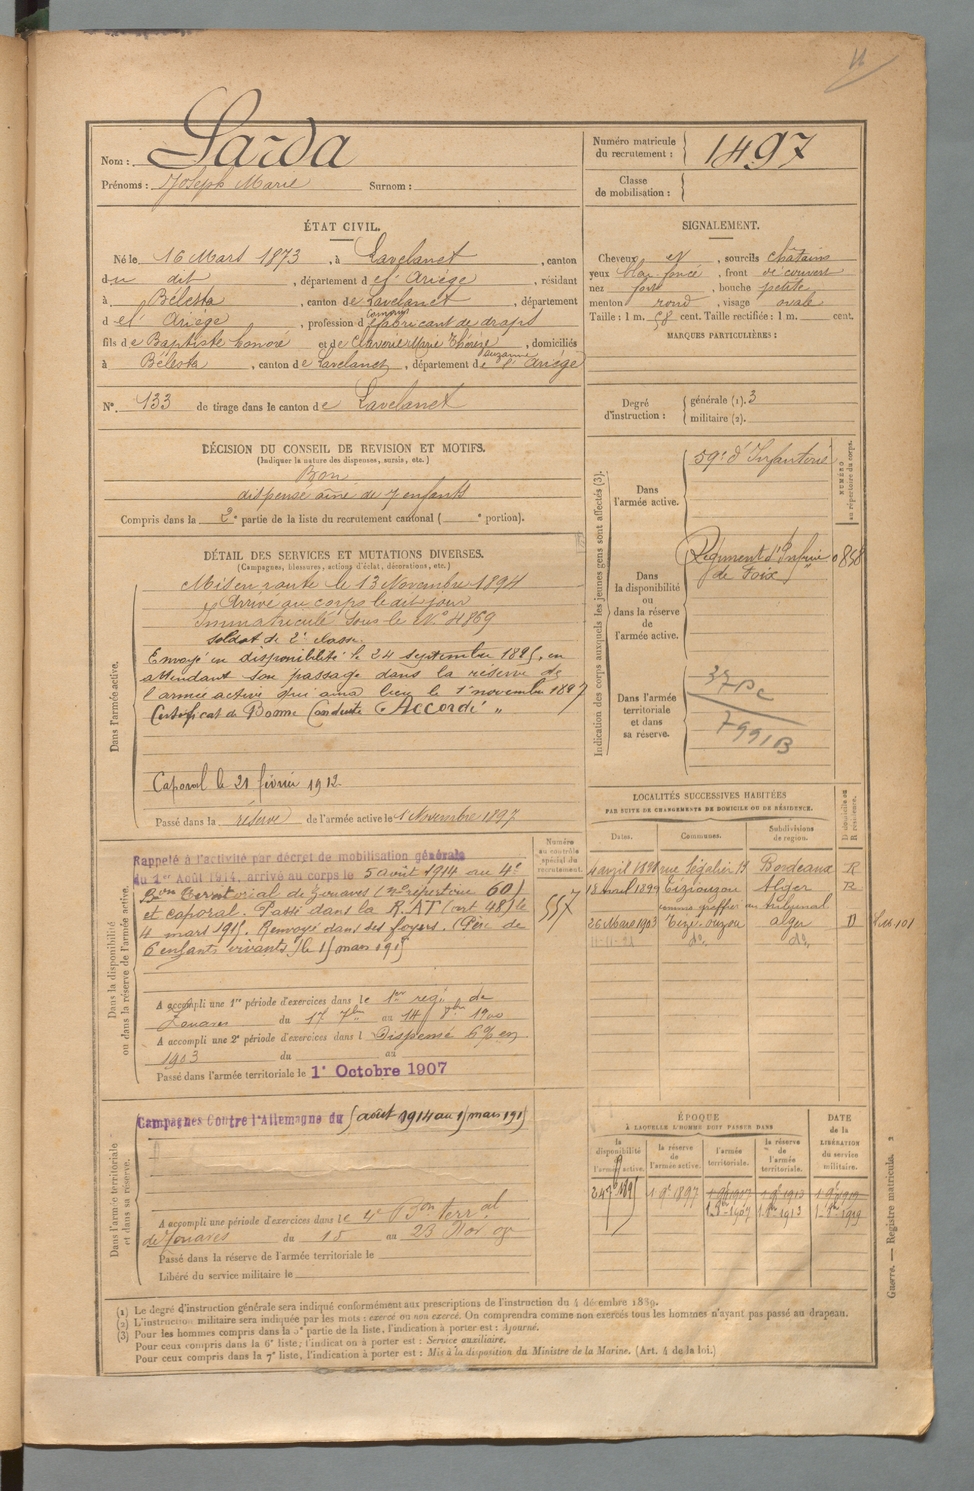 Nom : Sarda
Prénoms : Joseph Marie Surnom :
Numéro matricule du recrutement : 1497
Classe de mobilisation :
ÉTAT CIVIL.
Né le 16 Mars 1873, à Lavelanet, canton
du dit, département de l'Ariège, résidant
à Bélesta, canton de Lavelanet, département
de l' Ariège, profession de commis
fabricant de draps
fils de Baptiste honoré et de Claverie Marie Thérèze Suzanne, domiciliés
à Bélesta, canton de Lavelanet, département de l'Ariége
N° 133 de tirage dans le canton de Lavelanet
SIGNALEMENT.
Cheveux et, sourcils châtains
yeux bleu foncé, front découvert
nez fort, bouche petite
menton rond, visage ovale
Taille : 1 m. 58 cent. Taille rectifiée : 1 m. cent.
MARQUES PARTICULIÈRES :
Degré d'instruction :
générale (1). 3
militaire (2).
DÉCISION DU CONSEIL DE REVISION ET MOTIFS.
(Indiquer la nature des dispenses, sursis, etc.)
Bon
dispensé aîné de 7 enfants
Compris dans la 2e partie de la liste du recrutement cantonal ( e portion).
DÉTAIL DES SERVICES ET MUTATIONS DIVERSES.
(Campagnes, blessures, actions d'éclat, décorations, etc.)
Dans l'armée active.
Mis en route le 13 Novembre 1894
Arrivé au corps le dit jour
Immatriculé sous le N° 4869
Soldat de 2e classe.
Envoyé en disponibilité le 24 septembre 1895, en
attendant son passage dans la réserve de
l'armée active qui aura lieu le 1er novembre 1897
Certificat de Bonne Conduite Accordé "
Caporal le 21 février 1912.
Passé dans la réserve de l'armée active le 1 Novembre 1897
Indication des corps auxquels les jeunes gens sont affectés (3).
NUMÉRO au répertoire du corps.
Dans l'armée active.
59e d'Infanterie
Dans la disponibilité ou dans la réserve de l'armée active.
Régiment d'Infrie
de Foix
0858
Dans l'armée territoriale et dans sa réserve.
7991B
LOCALITÉS SUCCESSIVES HABITÉES
PAR SUITE DE CHANGEMENTS DE DOMICILE OU DE RÉSIDENCE.
Dates. Communes. Subdivisions de region. D domicile ou R résidence.
Bordeaux R
Tiziouzou Alger R
commis greffier au tribunal
26 Mars 1903 Tizi-ouzou alger D
11-11-21 do. do.
Dans la disponibilité ou dans la réserve de l'armée active.
Numéro au contrôle spécial du recrutement.
557
Rappelé à l'activité par décret de mobilisation générale
du 1er Août 1914, arrivé au corps le 5 avout 1914 au 4e
Bon Territorial de Zouaves (no répertoire 60)
et caporal. Passé dans la R.AT (art 48) le
4 mars 1915. Renvoyé dans ses foyers. (Père de
6 enfants vivants) le 15 mars 1915
A accompli une 1re période d'exercices dans le 1er reg. de
Zouaves du 17 7bre au 14 8bre 1900
A accompli une 2e période d'exercices dans l Dispensé
1903 du au
Passé dans l'armée territoriale le 1er Octobre 1907
Dans l'armée territoriale et dans sa réserve.
Campagnes Contre l'Allemagne du 5 août 1914 au 15 mars 1915
A accompli une période d'exercices dans le 4e Bon terral
de Zouaves du 15 au 23 Nov 09
Passé dans la réserve de l'armée territoriale le
Libéré du service militaire le
ÉPOQUE
À LAQUELLE L'HOMME DOIT PASSER DANS
la disponibilité de l'armée active.
la réserve de l'armée active.
l'armée territoriale.
la réserve de l'armée territoriale.
DATE de la LIBÉRATION du service militaire.
24 7b 1895 1 9e 1897 1 9b 1907 1 9e 1913 1 9e 1919
1 8e 1907 1 8e 1913 1 8e 1919
Guerre. — Registre matricule. 2
(1) Le degré d'instruction générale sera indiqué conformément aux prescriptions de l'instruction du 4 décembre 1889.
(2) L'instruction militaire sera indiquée par les mots : exercé ou non exercé. On comprendra comme non exercés tous les hommes n'ayant pas passé au drapeau.
(3) Pour les hommes compris dans la 5e partie de la liste, l'indication à porter est : Ajourné.
Pour ceux compris dans la 6e liste, l'indication à porter est : Service auxiliaire.
Pour ceux compris dans la 7e liste, l'indication à porter est : Mis à la disposition du Ministre de la Marine. (Art. 4 de la loi.)